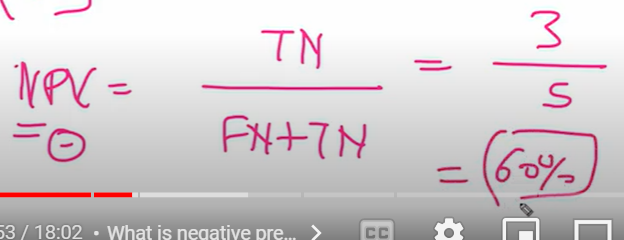 NPV = TN / FN+TN = 3 / 5
= ⊖ = 60%
53 / 18:02 • What is negative pre... >
CC